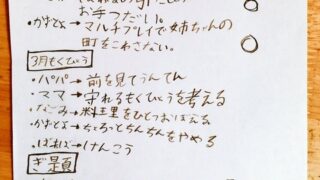 お手つだい。
・かずとよ→マルチプレイで姉ちゃんの
町をこわさない。
3月もくひょう
・パパ→前を見てうんてん
・ママ→守れるもくひょうを考える
・なごみ→料理をひとつおぼえる
・かずとよ→ちょろっとちんちんをやめる
・ばぁば→けんこう
ぎ題